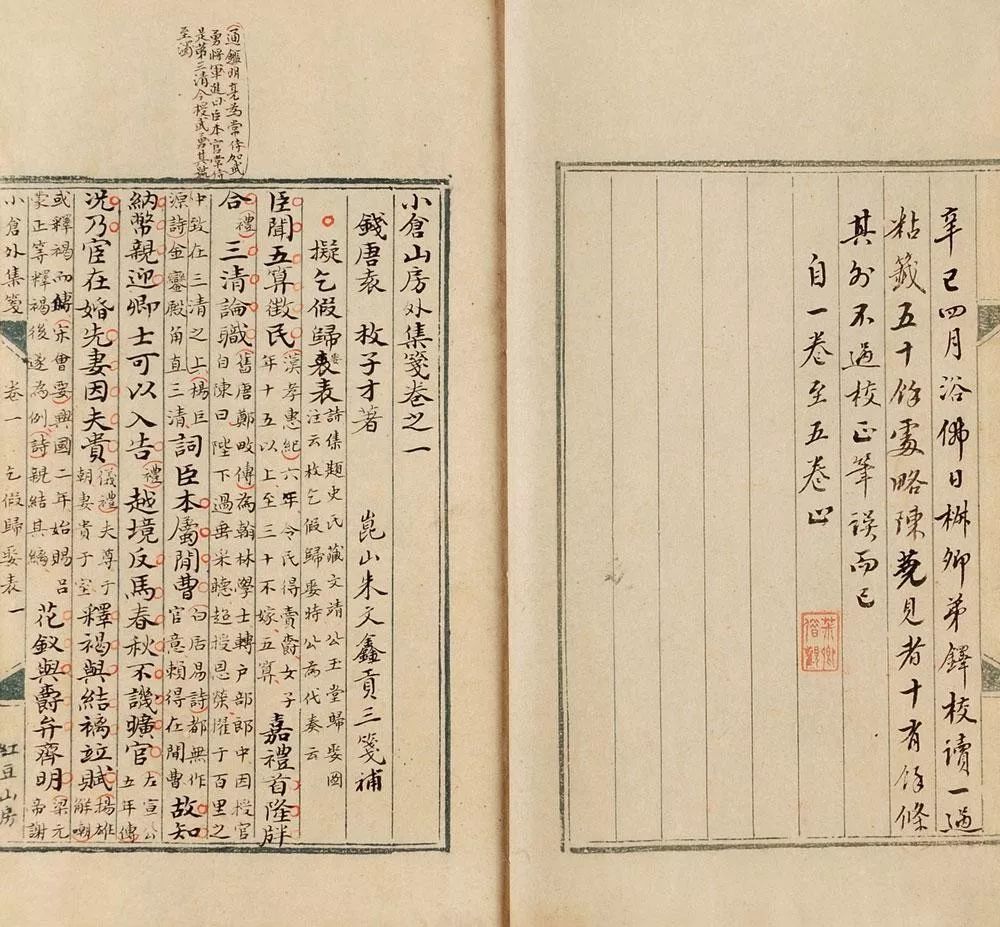 辛巳四月浴佛日栟卿弟鐸校讀一過
粘籤五十餘處略陳蕘見者十有餘條
其外不過校正筆誤而已
自一卷至五卷止
通鑑明亮為常侍加武
勇將軍進曰臣本官常侍
是第二清今授武勇其
至濁
小倉山房外集箋卷之一
錢唐袁 枚子才著 崑山朱文鑫貢三箋補
擬乞假歸娶表 詩集題史氏藏文靖公玉堂歸娶圖注云枚乞假歸娶時公為代奏云
臣聞五算徵民 漢孝惠紀六年令民得賣爵女子年十五以上至三十不嫁五算 嘉禮首隆牉
合 禮 三清論職 舊唐鄭畋傳為翰林學士轉戶部郎中因授官自陳曰陛下過垂采聽超授恩榮擢于百里之
中致在三清之上楊巨源詩金鑾殿角直三清 詞臣本屬閒曹 白居易詩都無作官意賴得在閒曹 故知
納幣親迎卿士可以入告 禮 越境反馬春秋不譏曠官 左宣公五年傳
況乃宦在婚先妻因夫貴 儀禮夫尊于朝妻貴于室 釋褐與結褵竝賦 揚雄解嘲
或釋褐而傅宋會要興國二年始賜呂蒙正等釋褐後遂為例詩親結其褵 花釵與爵弁齊明 梁元帝謝
小倉外集箋 卷一 乞假歸娶表 一
紅豆山房